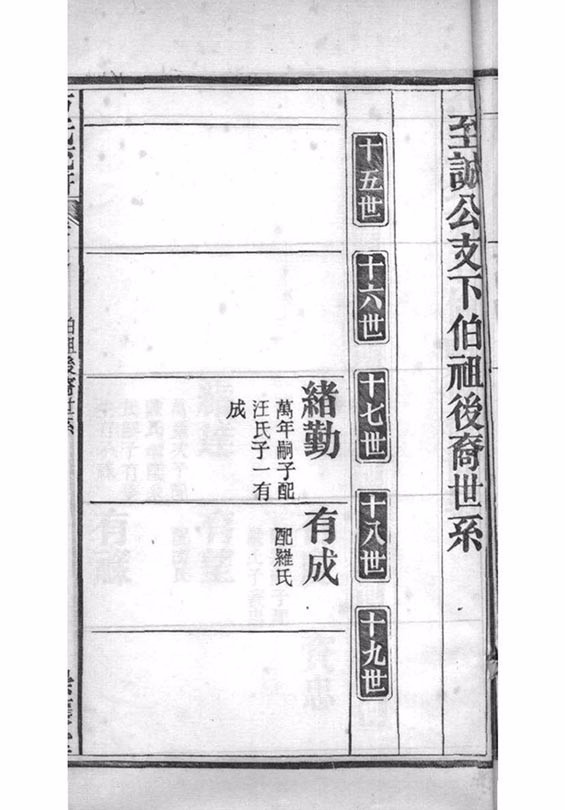 至誠公支下伯祖後裔世系
十五世
十六世
十七世
十八世
十九世
緒勤
萬年嗣子配
汪氏子一有
成
有成
配羅氏
伯祖後裔世系